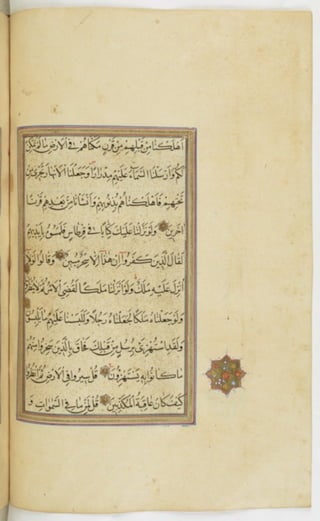 اهلكنا من قبلهم من قرن مكناهم في الارض ما لم نمكن
لكم وارسلنا السماء عليهم مدرارا وجعلنا الانهار تجري من
تحتهم فاهلكناهم بذنوبهم وانشانا من بعدهم قرنا
اخرين ولو نزلنا عليك كتابا في قرطاس فلمسوه بايديهم
لقال الذين كفروا ان هذا الا سحر مبين وقالوا لولا
انزل عليه ملك ولو انزلنا ملكا لقضي الامر ثم لا ينظرون
ولو جعلناه ملكا لجعلناه رجلا وللبسنا عليهم ما يلبسون
ولقد استهزئ برسل من قبلك فحاق بالذين سخروا منهم
ما كانوا به يستهزئون قل سيروا في الارض ثم انظروا
كيف كان عاقبة المكذبين قل لمن ما في السموات و